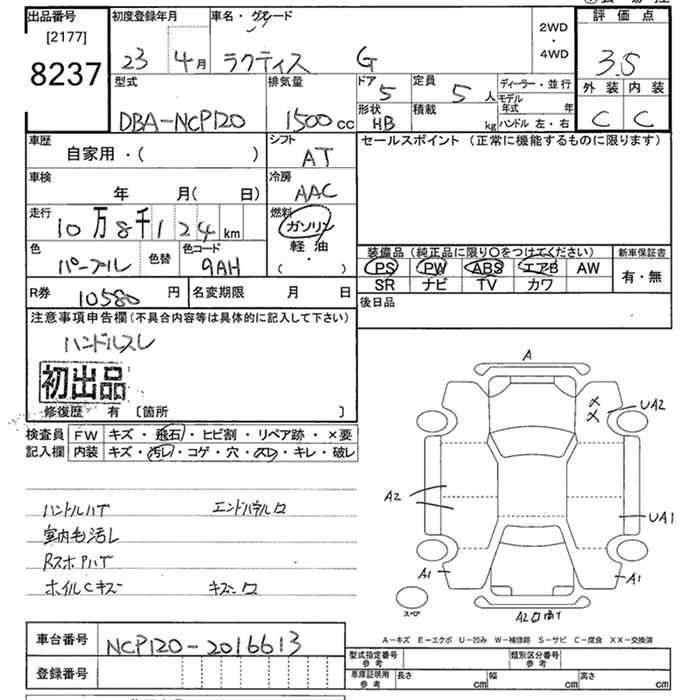 出品番号 初度登録年月 車名・グレード 2WD ・ 4WD 評価点
[2177]
8237
23 4月 ラクティス G 3.5
型式 排気量 ドア 5 定員 5人 ディーラー・並行 外装 内装
モデル年式 年
DBA-NCP120 1500cc 形状 HB 積載 kg ハンドル 左・右 C C
車歴 シフト セールスポイント (正常に機能するものに限ります)
自家用・( ) AT
車検 冷房
年 月( 日) AAC
走行 燃料
10万8千124km ガソリン
軽油
( )
色 色替 色コード 装備品 (純正品に限り〇をつけてください) 新車保証書
パープル 9AH PS PW ABS エアB AW 有・無
SR ナビ TV カワ
R券 10580円 名変期限 月 日 後日品
注意事項申告欄(不具合内容等は具体的に記入して下さい)
ハンドルスレ
初出品
修復歴 有 〔箇所 〕
検査員 FW キズ・飛石・ヒビ割・リペア跡・×要
記入欄 内装 キズ・汚レ・コゲ・穴・スレ・キレ・破レ
ハンドルハゲ
室内毛汚レ
ホイルCキズ
A
UA2
A2
UA1
A1 A1
スペア
A-キズ E-エクボ U-凹み W-補修跡 S-サビ C-腐食 XX-交換済
車台番号 NCP120-2016613
型式指定番号 参考 類別区分番号 参考
登録番号
車庫証明用 参考 長さ cm 幅 cm 高さ cm